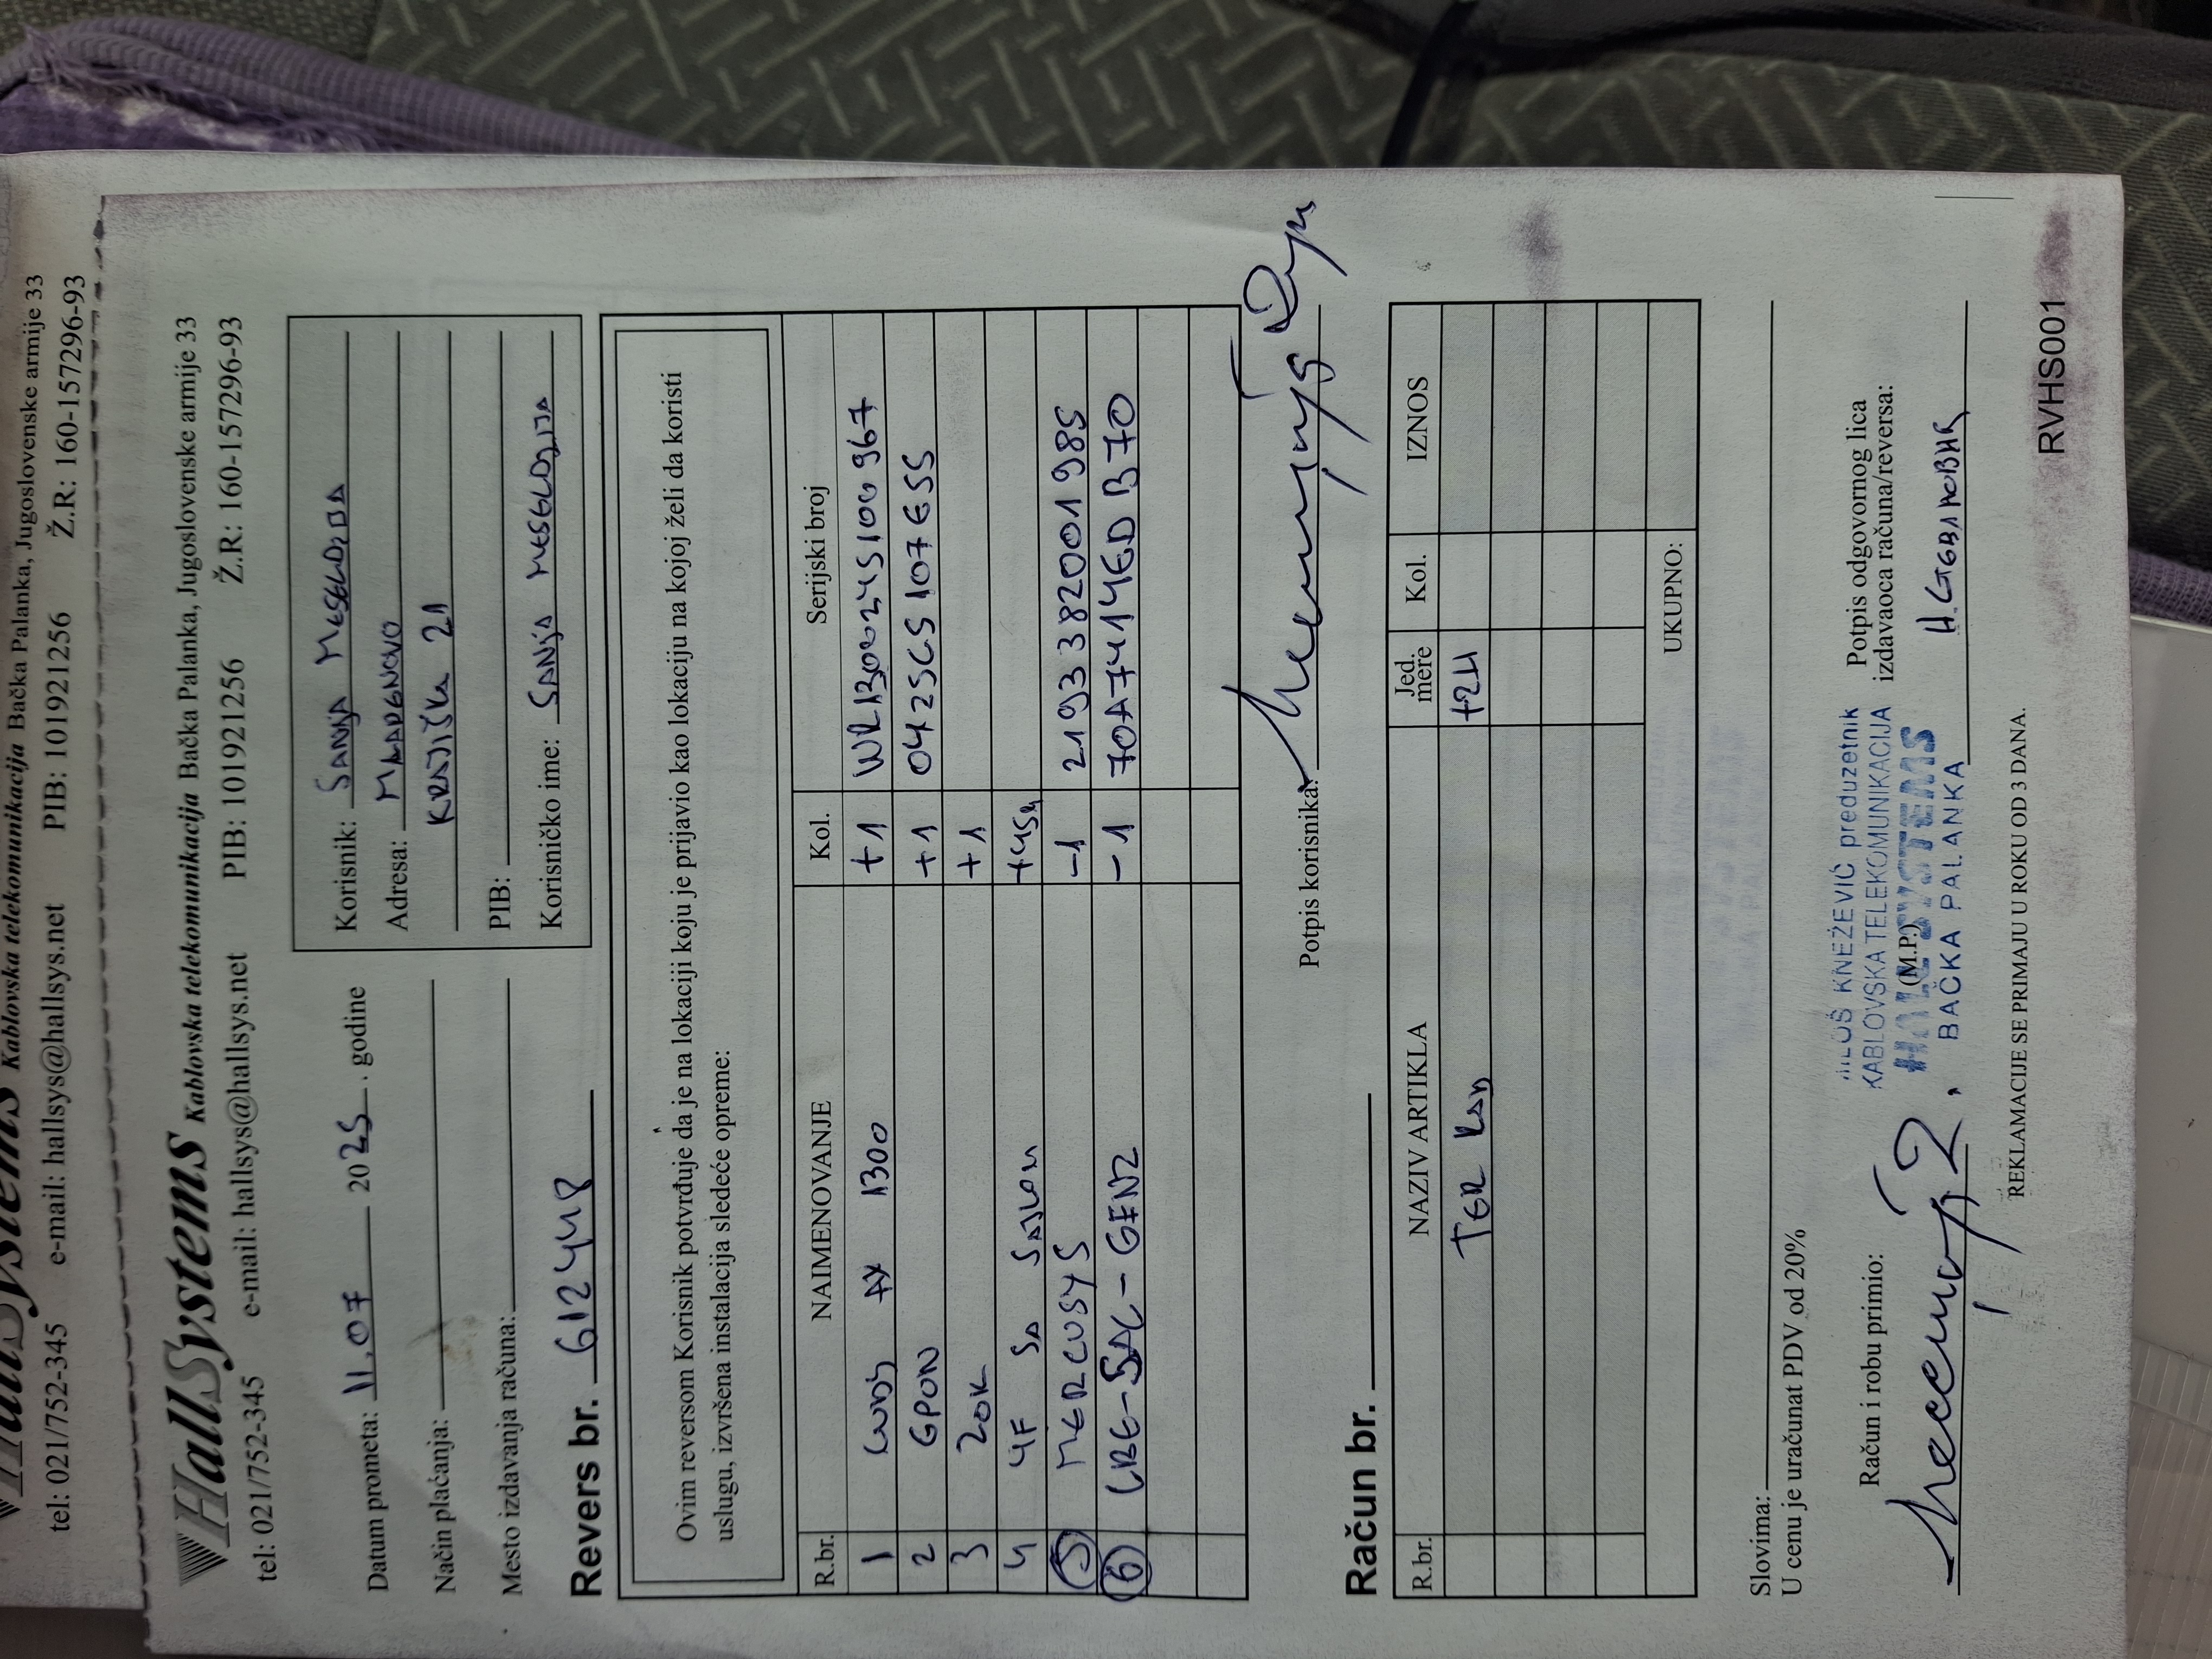 HallSystems Kablovska telekomunikacija Bačka Palanka, Jugoslovenske armije 33
tel: 021/752-345 e-mail: hallsys@hallsys.net PIB: 101921256 Ž.R: 160-157296-93
HallSystems Kablovska telekomunikacija Bačka Palanka, Jugoslovenske armije 33
tel: 021/752-345 e-mail: hallsys@hallsys.net PIB: 101921256 Ž.R: 160-157296-93
Datum prometa: 11.07 2025. godine
Način plaćanja:
Mesto izdavanja računa:
Korisnik: SANJA
Adresa: MLADENOVO
KRAJIŠKA 21
PIB:
Korisničko ime: SANJA
Revers br. 612448
Ovim reversom Korisnik potvrđuje da je na lokaciji koju je prijavio kao lokaciju na kojoj želi da koristi
uslugu, izvršena instalacija sledeće opreme:
R.br. NAIMENOVANJE Kol. Serijski broj
1 AX 1300 +1 WR1300245100967
2 GPON +1 0425CS107655
3 ZOK +1
4 4F SA SAJLOM
5 MERCUSYS -1 2193382001985
6 LBE-5AC-GEN2 -1 70A7414EDB70
Potpis korisnika:
Račun br.
R.br. NAZIV ARTIKLA Jed. mere Kol. IZNOS
UKUPNO:
Slovima:
U cenu je uračunat PDV od 20%
Račun i robu primio:
MILOŠ KNEŽEVIĆ preduzetnik
KABLOVSKA TELEKOMUNIKACIJA
(M.P.)
HALL SYSTEMS
BAČKA PALANKA
Potpis odgovornog lica
izdavaoca računa/reversa:
REKLAMACIJE SE PRIMAJU U ROKU OD 3 DANA.
RVHS001